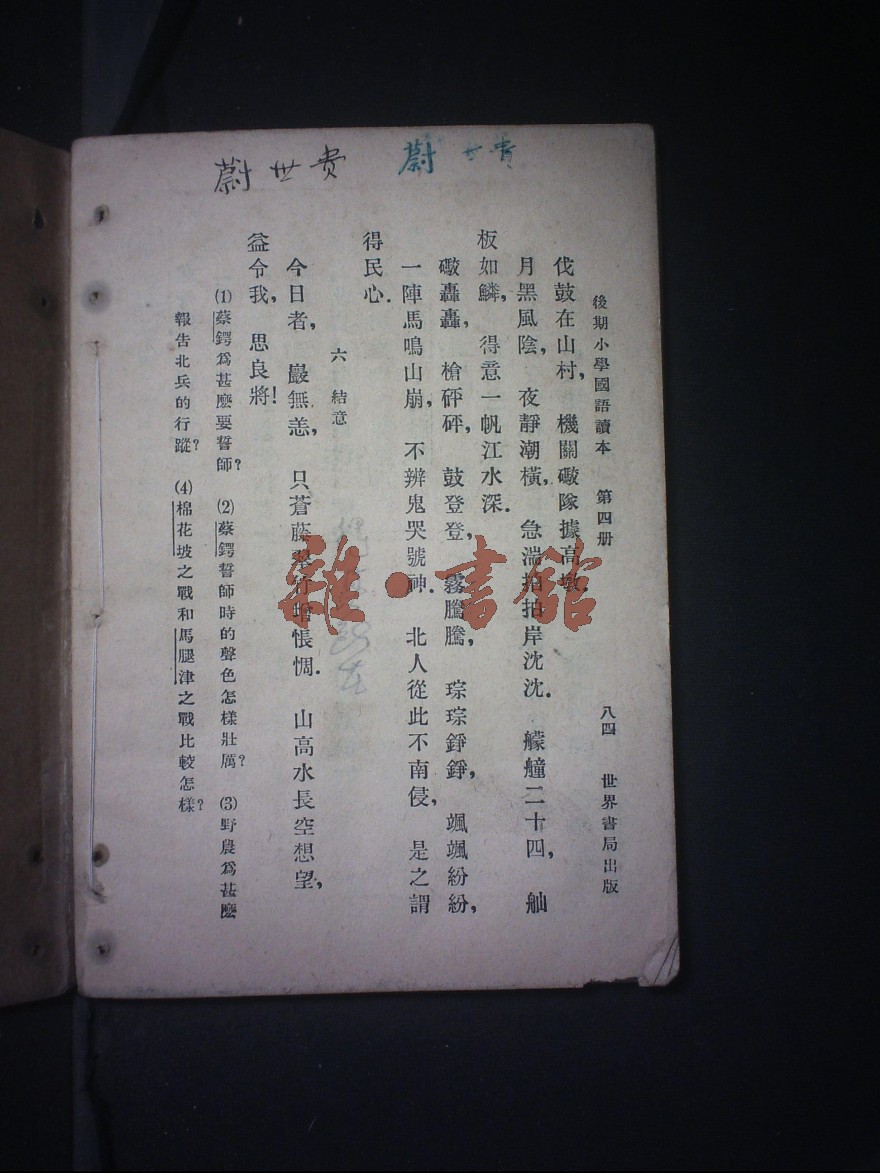 蔚世贵
蔚世貴
後期小學國語讀本 第四册 八四 世界書局出版
伐鼓在山村, 機關礮隊據高墩.
月黑風陰, 夜靜潮橫, 急湍拍拍岸沈沈. 艨艟二十四, 舢
板如鱗, 得意一帆江水深.
礮轟轟, 槍砰砰, 鼓登登, 霧騰騰, 琮琮錚錚, 颯颯紛紛,
一陣馬鳴山崩, 不辨鬼哭號神. 北人從此不南侵, 是之謂
得民心.
六 結意
今日者, 巖無恙, 只蒼藤翠竹增悵惆. 山高水長空想望,
益令我, 思良將!
(1)蔡鍔爲甚麽要誓師? (2)蔡鍔誓師時的聲色怎樣壯厲? (3)野農爲甚麽
報告北兵的行蹤? (4)棉花坡之戰和馬腿津之戰比較怎樣?
雜·書館